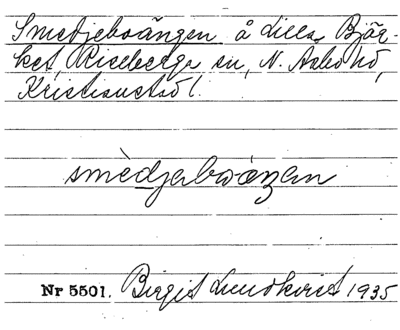 Smedjeboängen å Lilla Bjär-
ket, Riseberga sn, N. Åsbo hd,
Kristianstad l.
smèdjabwàŋən
Nr 5501. Birgit Lundkvist 1935